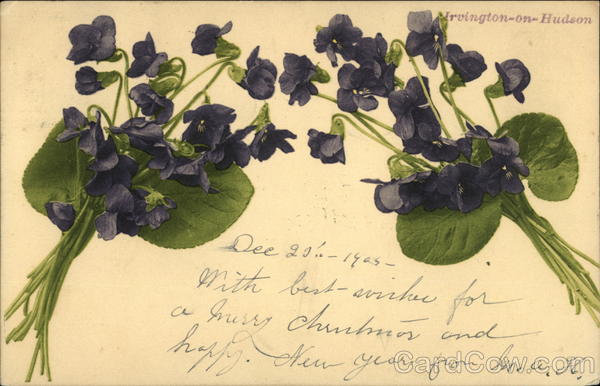 Irvington-on-Hudson
Dec 23" - 1905-
With best-wishes for
a merry christmas and
happy. New year from
CardCow.com